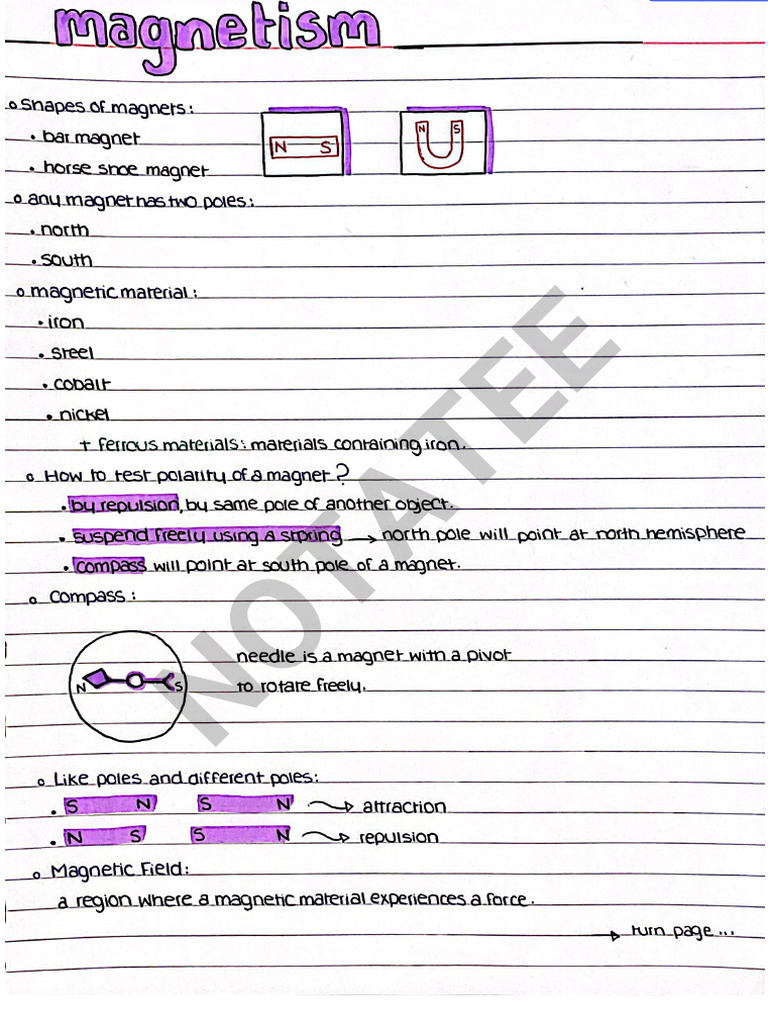 magnetism
Shapes of magnets:
bar magnet
N S
N S
horse shoe magnet
any magnet has two poles:
north
south
magnetic material:
iron
steel
cobalt
nickel
+ ferrous materials: materials containing iron.
How to test polarity of a magnet?
by repulsion, by same pole of another object.
suspend freely using a stpring → north pole will point at north hemisphere
compass will point at south pole of a magnet.
compass:
needle is a magnet with a pivot
N S
to rotate freely.
Like poles and different poles:
S N S N → attraction
N S S N → repulsion
Magnetic Field:
a region where a magnetic material experiences a force.
→ turn page...
NOTATEE